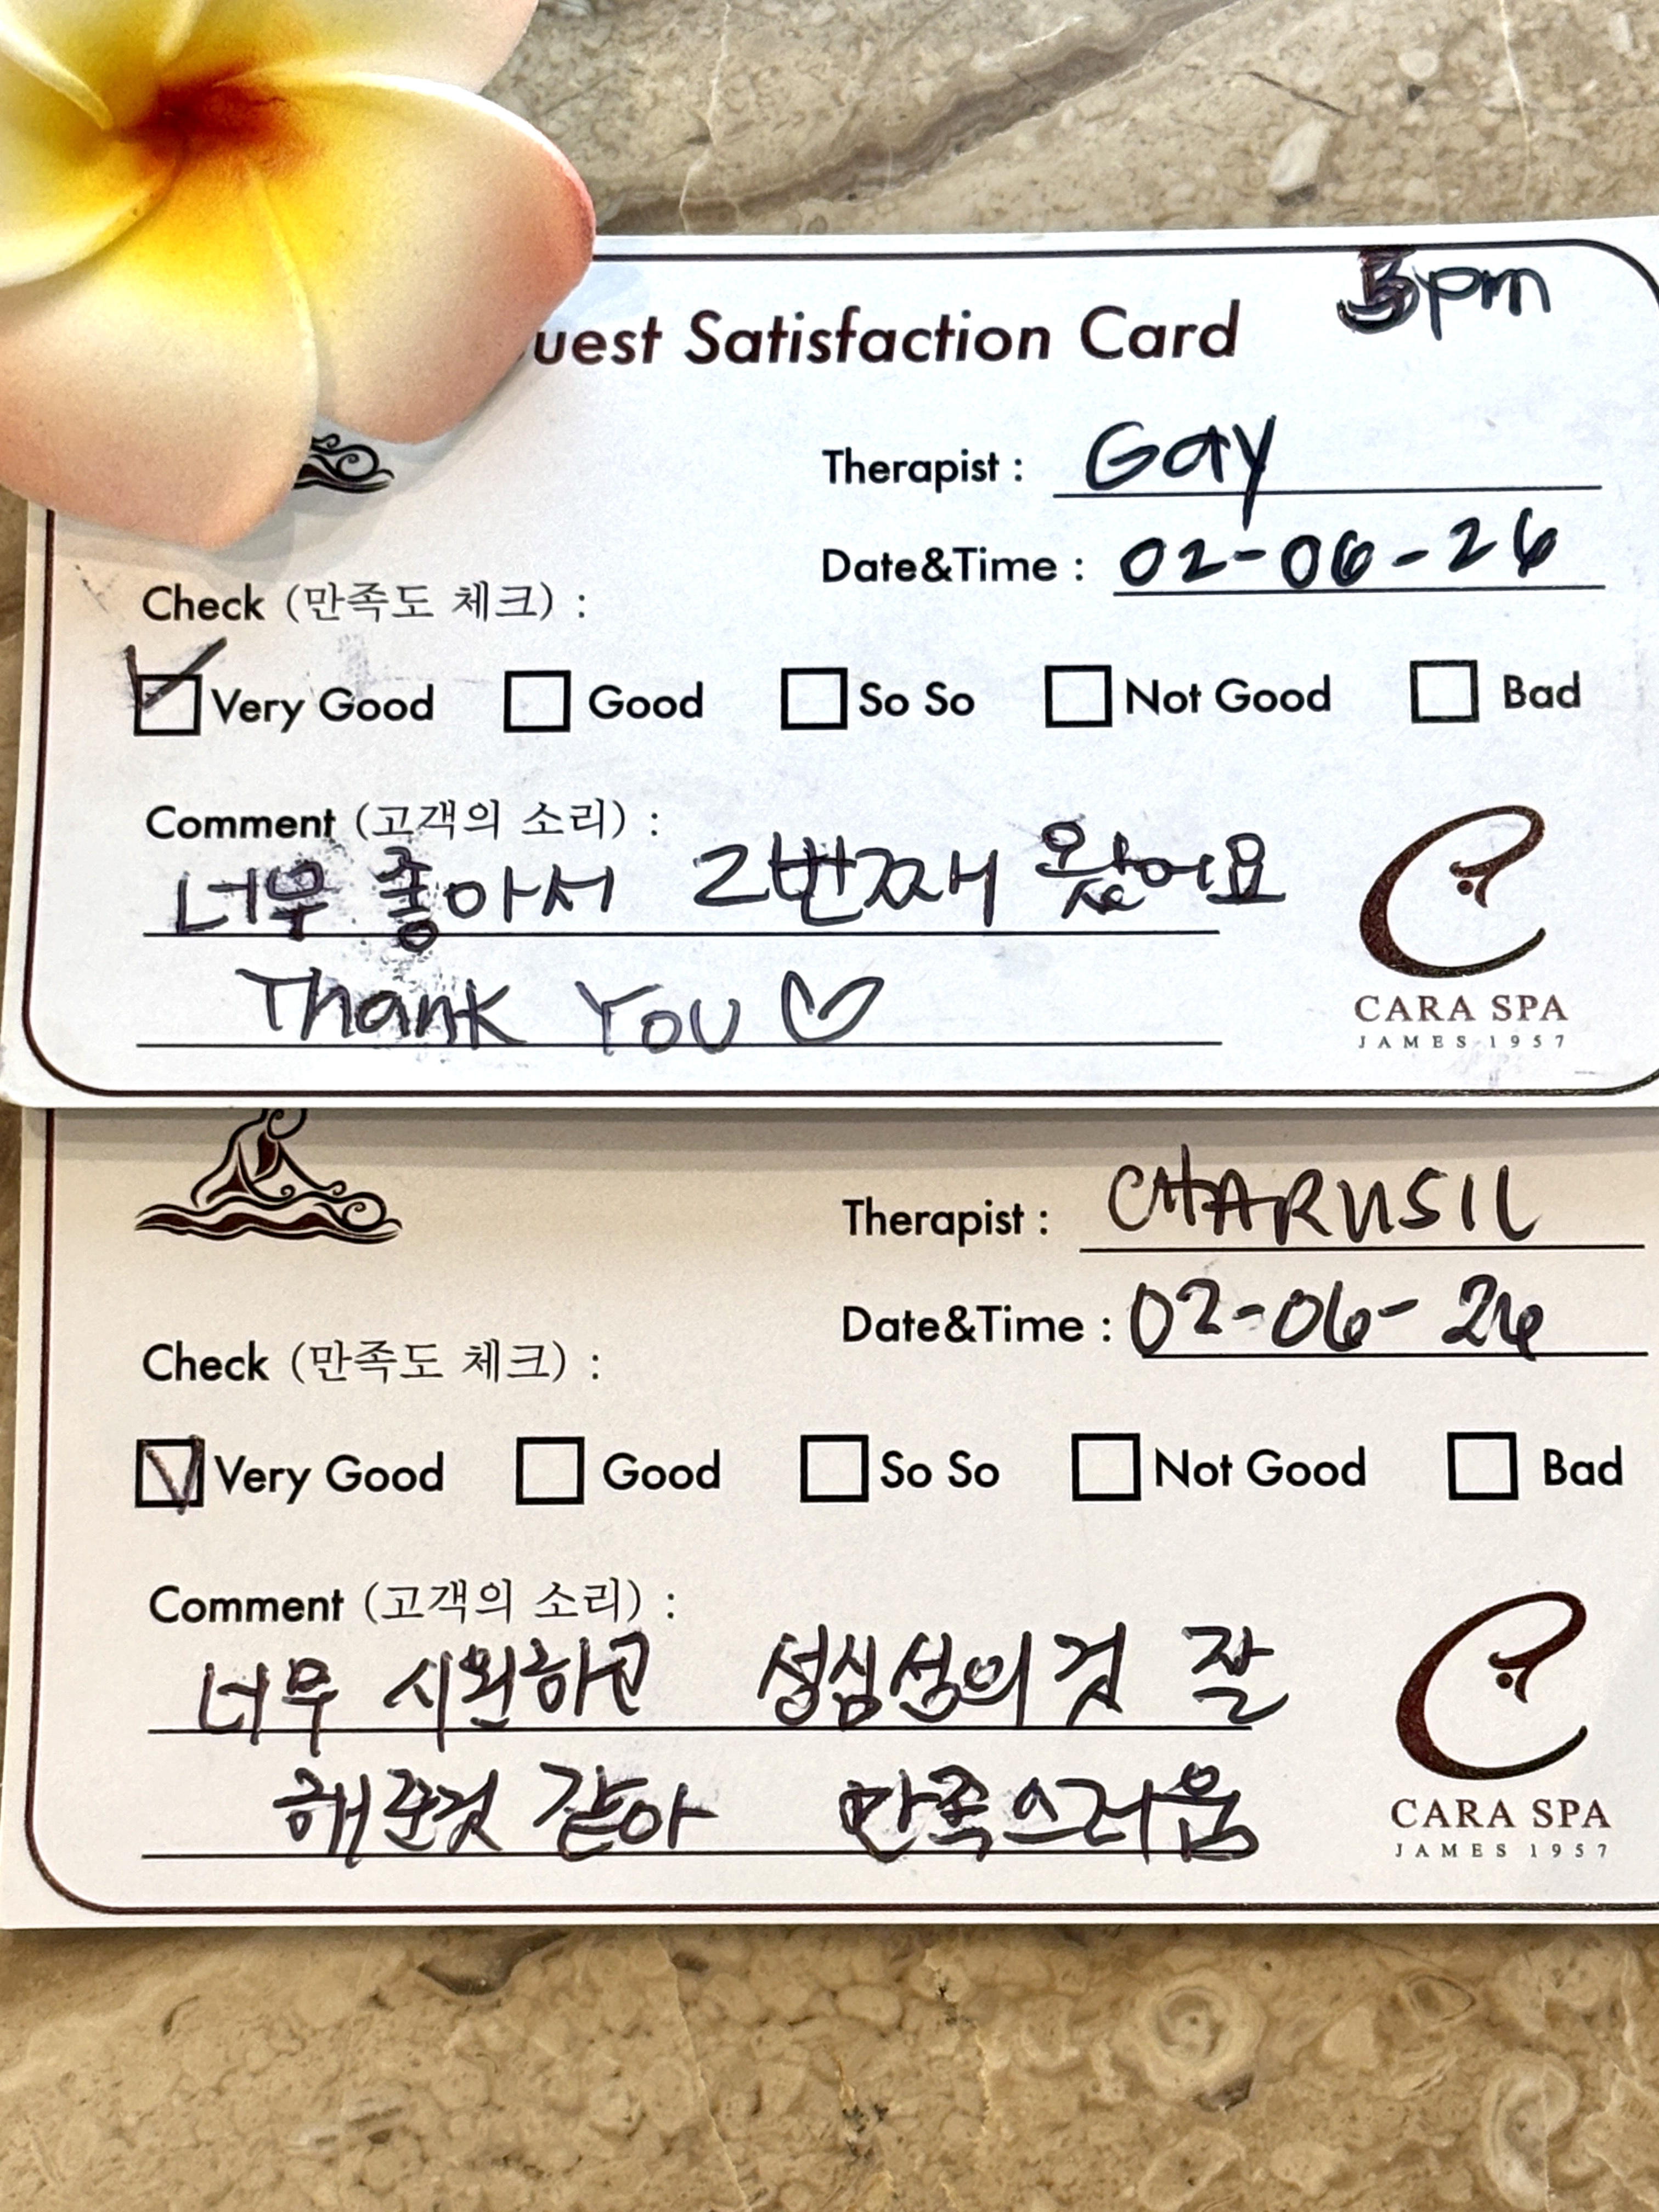 5pm
uest Satisfaction Card
Therapist : Gay
Date&Time : 02-06-26
Check (만족도 체크) :
Very Good Good So So Not Good Bad
Comment (고객의 소리) :
너무 좋아서 2번째 왔어요
Thank You ♡
CARA SPA
JAMES 1957
Therapist : CHARUSIL
Date&Time : 02-06-26
Check (만족도 체크) :
Very Good Good So So Not Good Bad
Comment (고객의 소리) :
너무 시원하고 성심성의것 잘
해준것 같아 만족스러움
CARA SPA
JAMES 1957